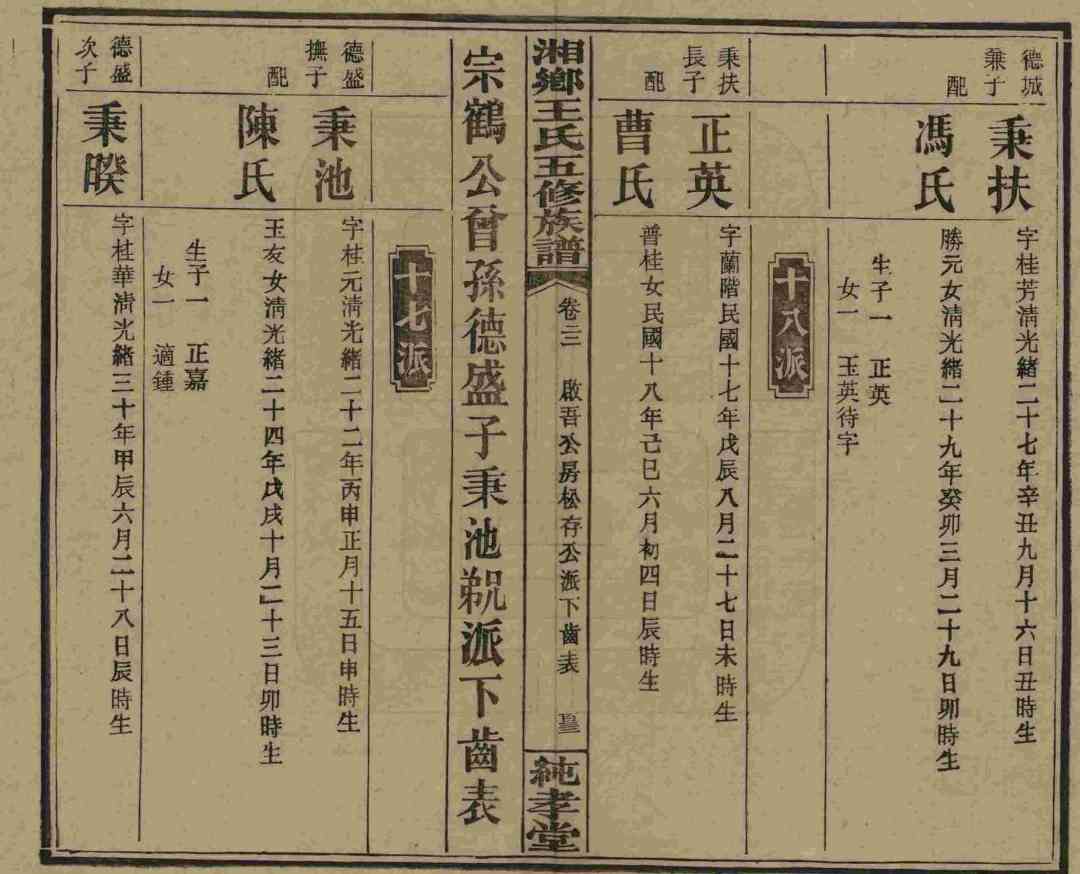 德城
兼子
秉扶
字桂芳清光緒二十七年辛丑九月十六日丑時生
配
馮氏
勝元女清光緒二十九年癸卯三月二十九日卯時生
生子一 正英
女一 玉英待字
十八派
秉扶
長子
正英
字蘭階民國十七年戊辰八月二十七日未時生
配
曹氏
普桂女民國十八年己巳六月初四日辰時生
湘鄉王氏五修族譜
卷三二 啟吾公房松存公派下齒表
純孝堂
宗鶴公曾孫德盛子秉池 派下齒表
十七派
德盛
撫子
秉池
字桂元清光緒二十二年丙申正月十五日申時生
配
陳氏
玉友女清光緒二十四年戊戌十月二十三日卯時生
生子一 正嘉
女一 適鍾
德盛
次子
秉暌
字桂華清光緒三十年甲辰六月二十八日辰時生